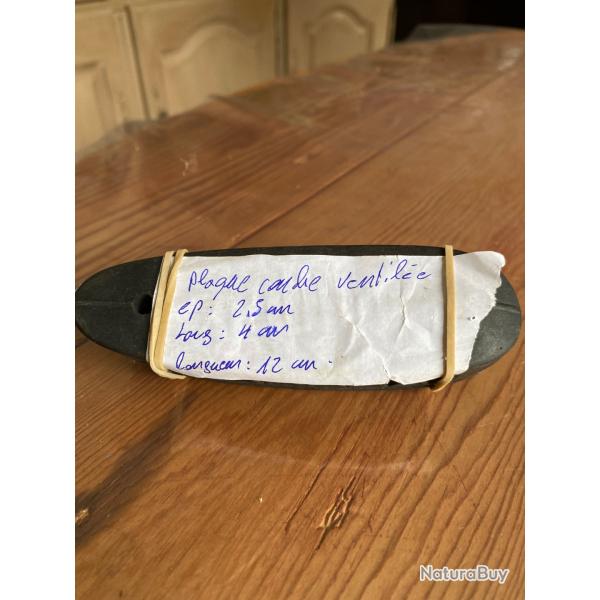 plaque couche ventilée
ep: 2,5 cm
Larg: 4 cm
longueur: 12 cm.
NaturaBuy